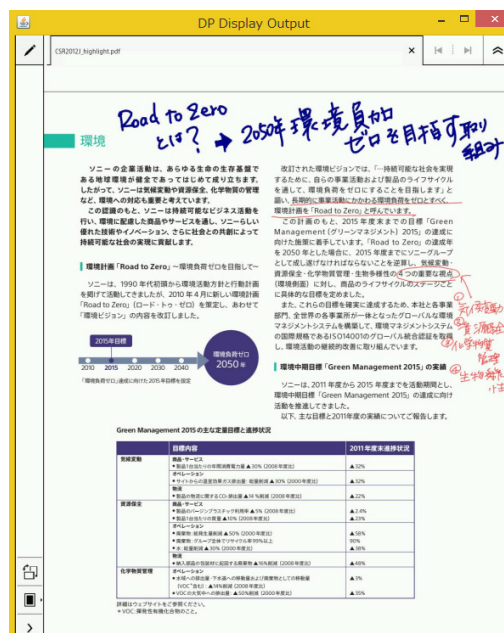 DP Display Output
CSR2012J_highlight.pdf
Road to Zero
とは? → 2050年環境負荷
ゼロを目指す取り
組み
環境
ソニーの企業活動は、あらゆる生命の生存基盤で
ある地球環境が健全であってはじめて成り立ちます。
したがって、ソニーは気候変動や資源保全、化学物質の管理
など、環境への対応も重要と考えています。
この認識のもと、ソニーは持続可能なビジネス活動を
行い、環境に配慮した商品やサービスを通し、ソニーらしい
優れた技術やイノベーション、さらに社会との共創によって
持続可能な社会の実現に貢献します。
環境計画「Road to Zero」～環境負荷ゼロを目指して～
ソニーは、1990年代初頭から環境活動方針と行動計画
を掲げて活動してきましたが、2010年4月に新しい環境計画
「Road to Zero」(ロード・トゥ・ゼロ) を策定し、あわせて
「環境ビジョン」の内容を改訂しました。
2015年目標
2010 2015 2020 2030 2040
環境負荷ゼロ
2050年
「環境負荷ゼロ」達成に向けた2015年目標を設定
改訂された環境ビジョンでは、「…持続可能な社会を実現
するために、自らの事業活動および製品のライフサイクル
を通して、環境負荷をゼロにすることを目指します」と
謳い、長期的に事業活動にかかわる環境負荷をゼロとすべく、
環境計画を「Road to Zero」と呼んでいます。
この計画のもと、2015年度末までの目標「Green
Management (グリーンマネジメント) 2015」の達成に
向けた施策に着手しています。「Road to Zero」の達成年
を2050年とした場合に、2015年度までにソニーグループ
として成し遂げなければならないことを逆算し、気候変動・
資源保全・化学物質管理・生物多様性の4つの重要な視点
(環境側面) に対し、商品のライフサイクルのステージごと
に具体的な目標を定めました。
また、これらの目標を確実に達成するため、本社と各事業
部門、全世界の各事業所が一体となったグローバルな環境
マネジメントシステムを構築して、環境マネジメントシステム
の国際規格であるISO14001のグローバル統合認証を取得
し、環境活動の継続的改善に取り組んでいます。
①気候変動
②資源保全
③化学物質
管理
環境中期目標「Green Management 2015」の実績
ソニーは、2011年度から2015年度までを活動期間とし、
環境中期目標「Green Management 2015」の達成に向け
活動を推進してきました。
以下、主な目標と2011年度の実績についてご報告します。
Green Management 2015の主な定量目標と進捗状況
目標内容 2011年度末進捗状況
気候変動 商品・サービス
● 製品1台当たりの年間消費電力量 ▲30% (2008年度比) ▲32%
オペレーション
● サイトからの温室効果ガス排出量: 総量削減 ▲30% (2000年度比) ▲32%
物流
● 製品の物流に関するCO₂排出量 ▲14%削減 (2008年度比) ▲22%
資源保全 商品・サービス
● 製品のバージンプラスチック利用率 ▲5% (2008年度比) ▲2.4%
● 製品1台当たりの質量 ▲10% (2008年度比) ▲23%
オペレーション
● 廃棄物: 総発生量削減 ▲50% (2000年度比) ▲58%
● 廃棄物: グループ全体でリサイクル率99%以上 90%
● 水: 総量削減 ▲30% (2000年度比) ▲38%
物流
● 納入部品の包装材に起因する廃棄物 ▲16%削減 (2008年度比) ▲48%
化学物質管理 オペレーション
● 水域への排出量・下水道への移動量および廃棄物としての移動量
● VOCの大気中への排出量: ▲50%削減 (2000年度比) ▲35%
詳細はウェブサイトをご参照ください。
* VOC: 揮発性有機化合物のこと。